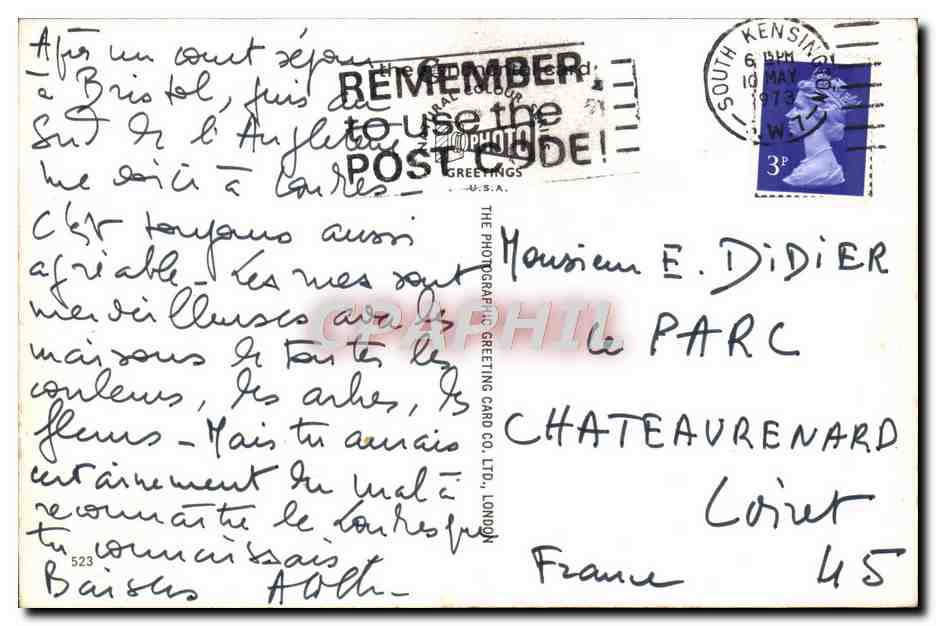 Après un court séjour
à Bristol, puis au
Sud de l'Angleterre
me voici à Londres -
C'est toujours aussi
agréable - Les rues sont
merveilleuses avec les
maisons de toutes les
couleurs, des arbres, des
fleurs - Mais tu aurais
certainement du mal à
reconnaître le Londres que
tu connaissais
Baisers
523
REMEMBER
to use the
POST CODE!
NATURAL COLOUR
PHOTO
GREETINGS
U.S.A.
THE PHOTOGRAPHIC GREETING CARD CO. LTD., LONDON
SOUTH KENSINGTON
6 PM
10 MAY
1973
S.W.7
3P
Monsieur E. DiDiER
le PARC
CHATEAURENARD
Loiret
France 45
CPAPHIL